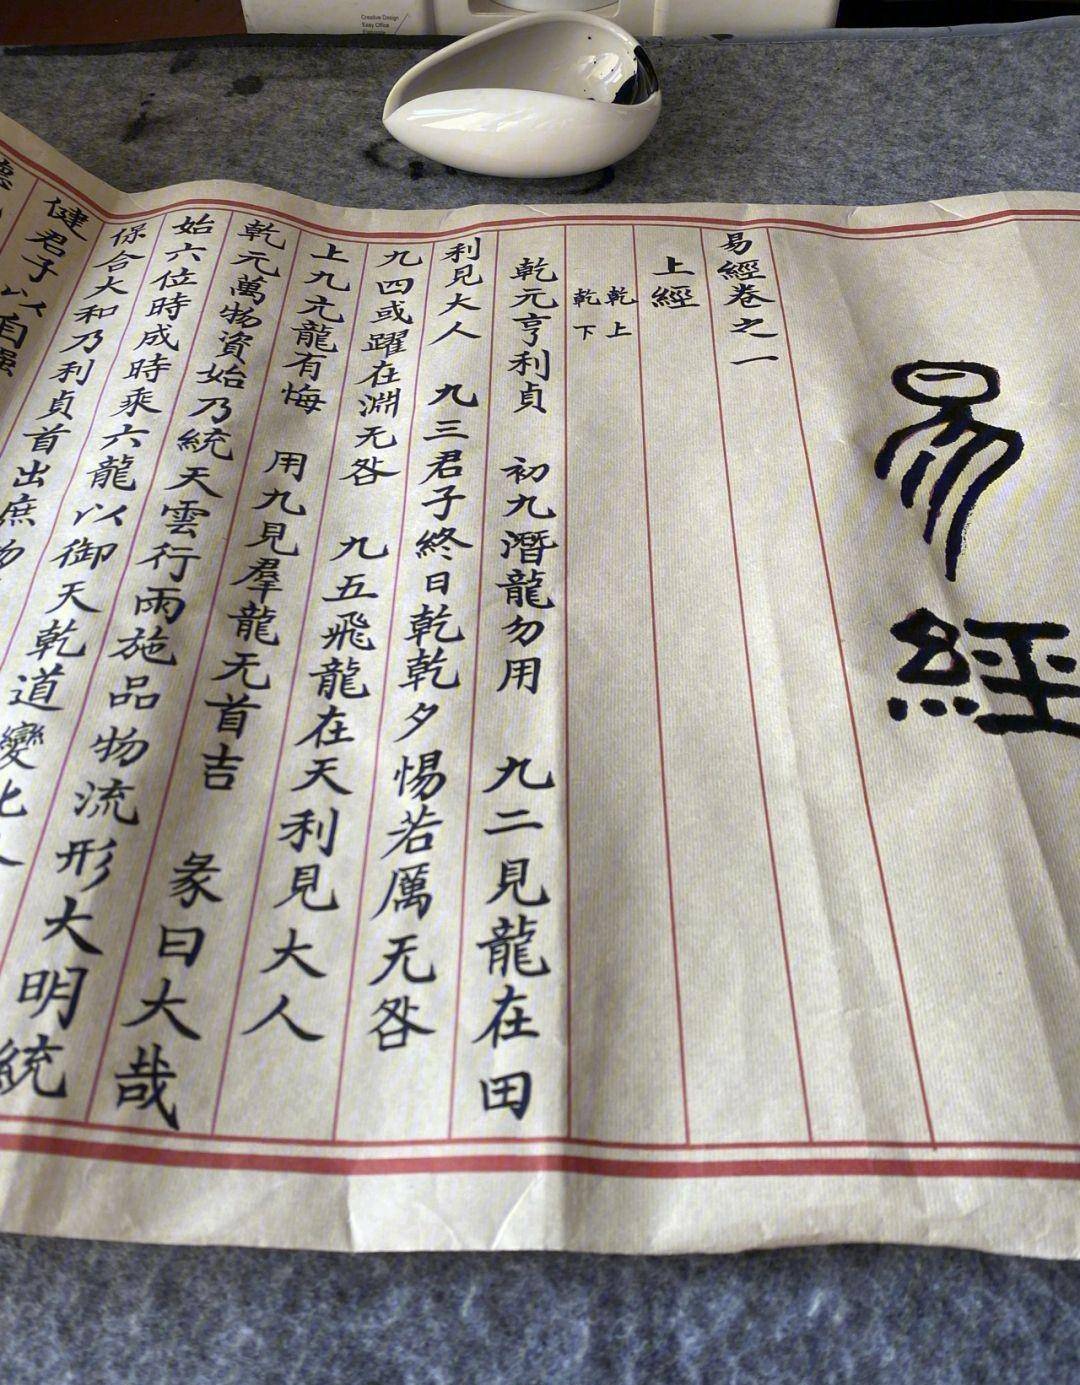 易經
易經卷之一
上經
乾上
乾下
乾元亨利貞 初九潛龍勿用 九二見龍在田
利見大人 九三君子終日乾乾夕惕若厲无咎
九四或躍在淵无咎 九五飛龍在天利見大人
上九亢龍有悔 用九見羣龍无首吉 彖曰大哉
乾元萬物資始乃統天雲行雨施品物流形大明統
始六位時成時乘六龍以御天乾道變化
保合大和乃利貞首出庶物
健君子以自强
德
Creative Design
Easy Office